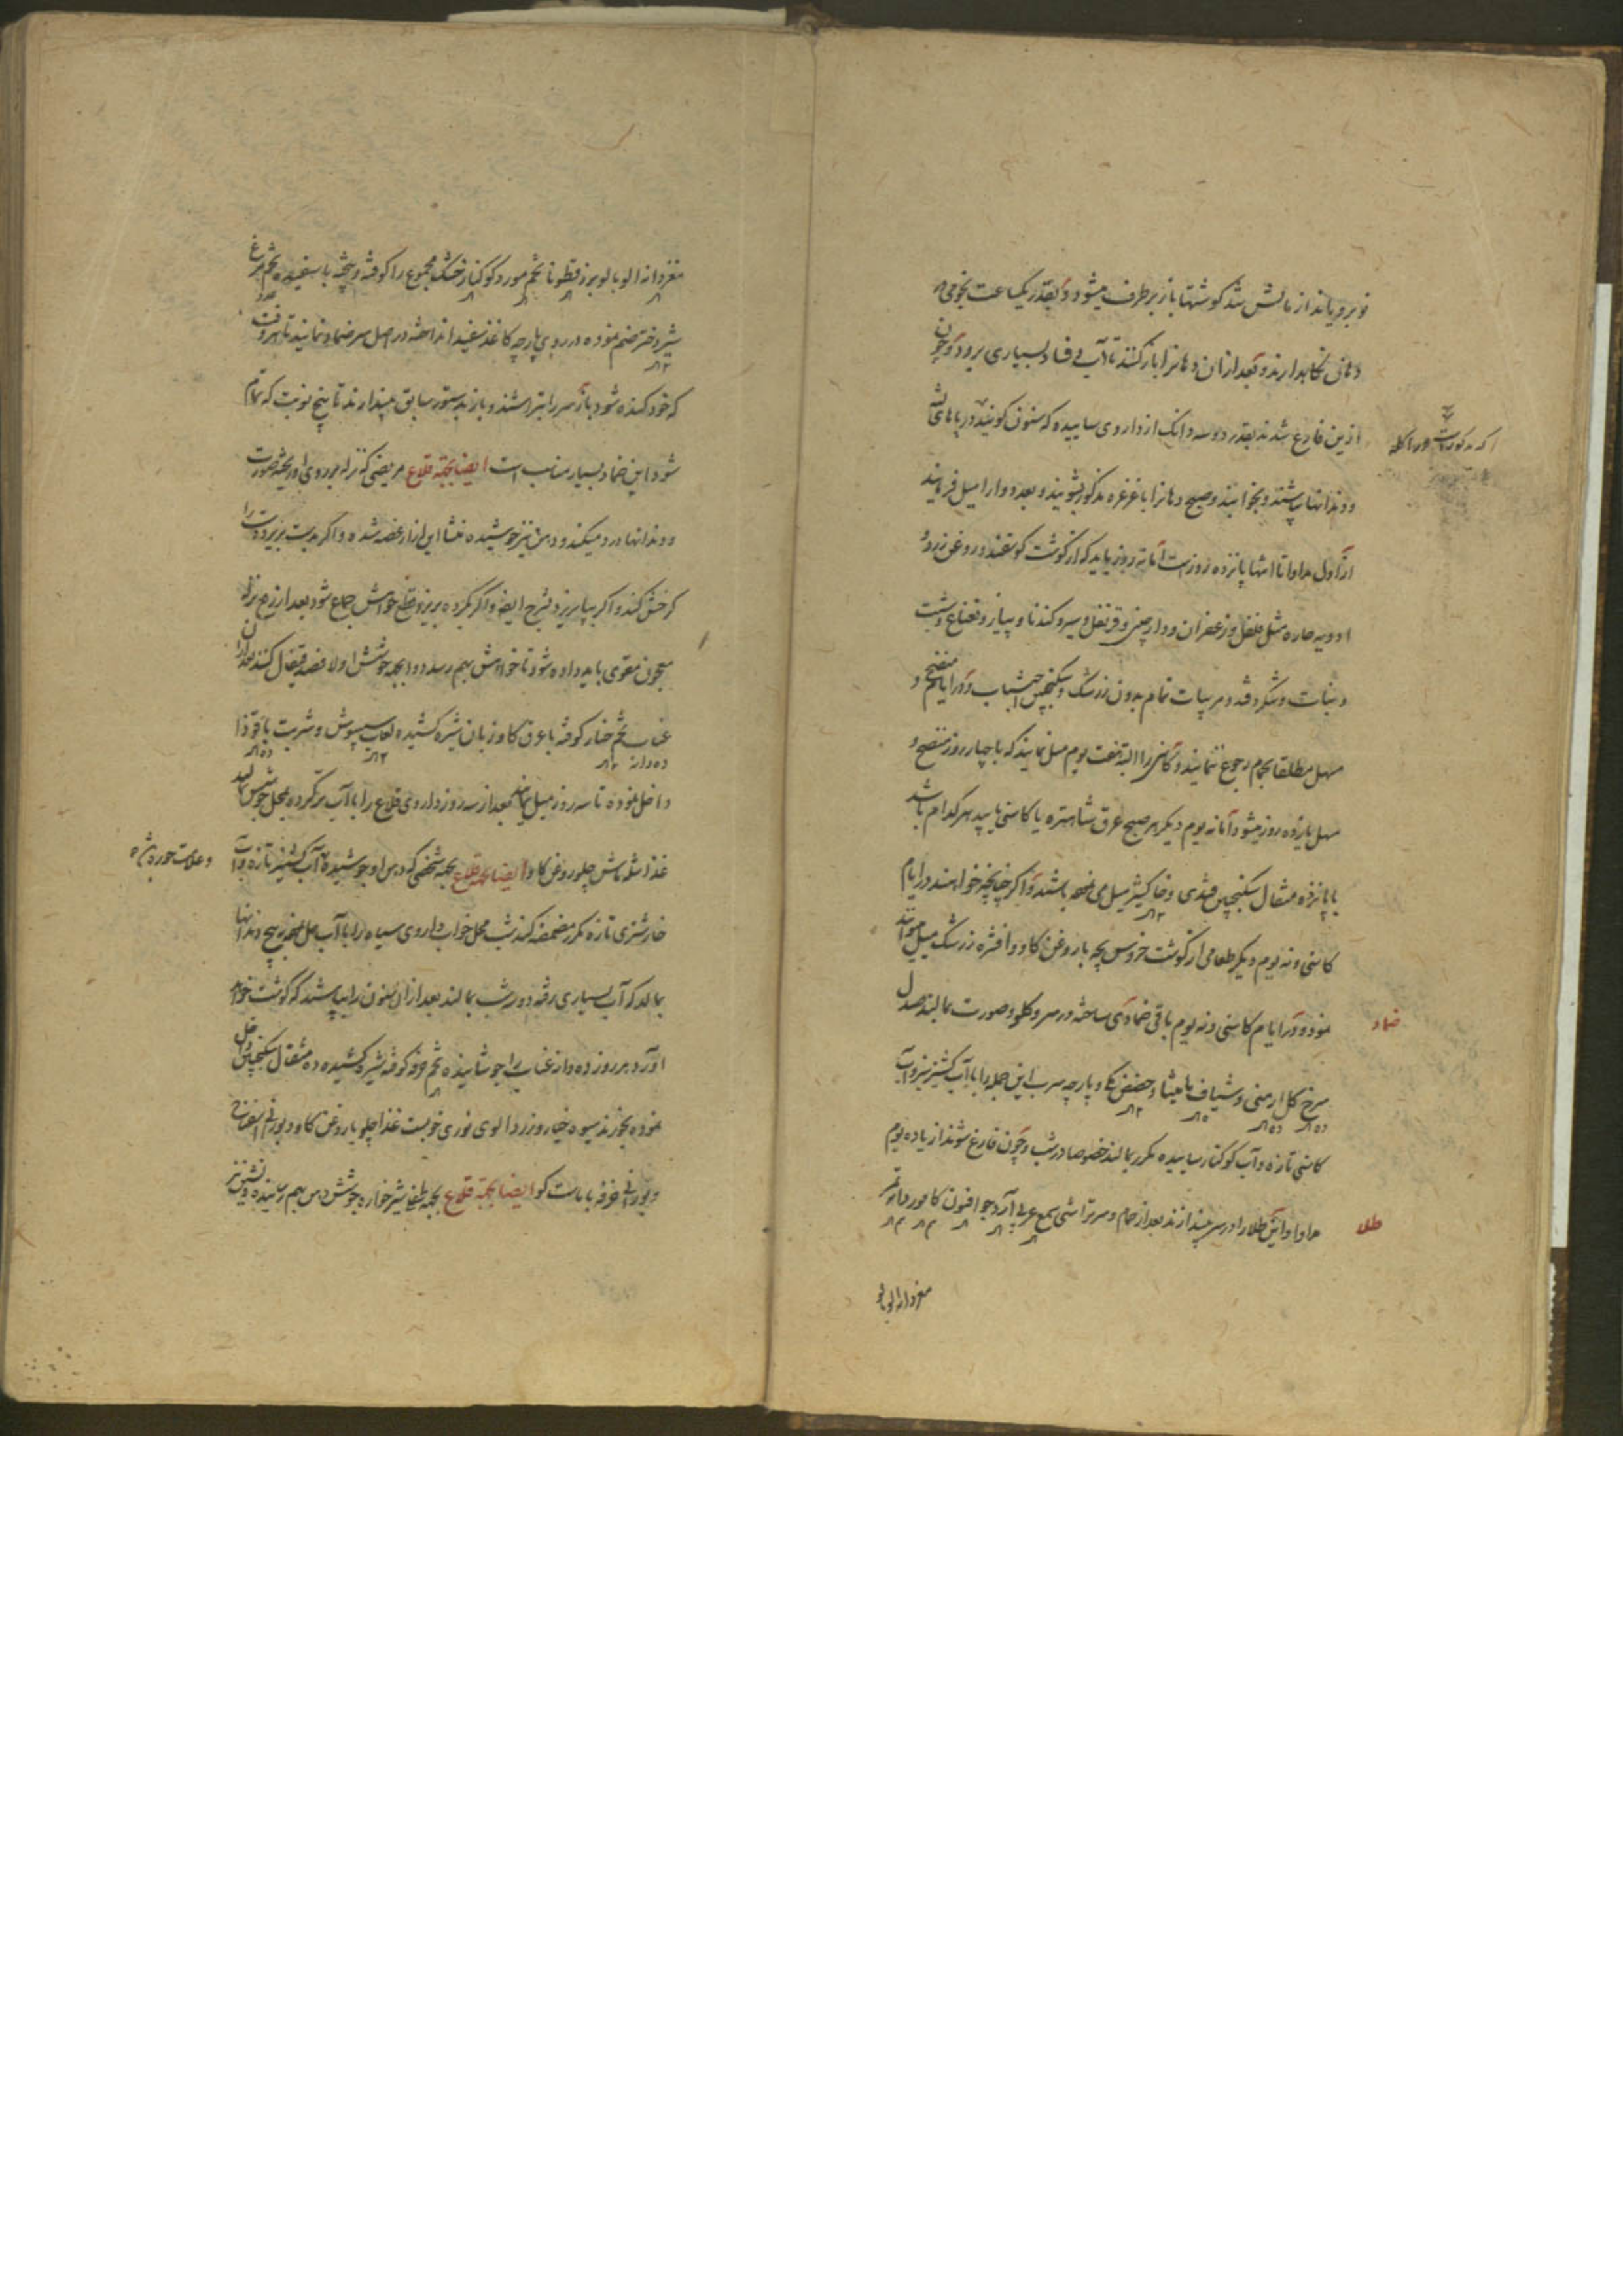 نو برویاند از مالش شد گوشتها باز برطرف میشود و بقدر یکساعت نجومی در
دهانی نگاهدارند و بعد از ان دهانرا باز کنند تا آب و فساد بسیاری برود و چون
ازین فارغ شدند بقدر دو سه دانک از داروی ساییده که سنون کویند در پاهای
و دندانها بپاشند و بخوابند و صبح دهانرا با غرغره مذکور بشویند و بعد دوا را میل فرمایند
از اول مداوا تا انتها پانزده روز است اما نه روز باید که از کوشت کوسفند و روغن زرد و
ادویه حاره مثل فلفل و زعفران و دارچینی و قرنفل و سیر و کندنا و پیاز و نعناع و شبت
و نبات و شکر و قند و مربیات تمام بدون زرشک و سکنجبین اجتناب و در ایام منضج و
مسهل مطلقا بحمام رجوع ننمایند و کاسنی را البته هفت یوم میل نمایند که با چهار روز منضج و
مسهل یازده روز میشود اما نه یوم دیکر هر صبح عرق شاهتره یا کاسنی یا بید هر کدام باشد
با پانزده مثقال سکنجبین قندی و خاکشیر میل می نموده باشند و اکر چنانچه خواهند در ایام
کاسنی و نه یوم دیکر طعامی از کوشت خروس بچه با روغن کاو و افشره زرشک میل میتوان
نمود و در ایام کاسنی و نه یوم باقی ضمادی ساخته در سر و کلو و صورت بمالند صندل
ضماد
سرخ کل ارمنی و شیاف مامیثا و حضض مکی و پارچه سرب این جمله را با آب کشنیز سبز و آب
کاسنی تازه و آب کوکنار ساییده مکرر بمالند خصوصا در شب و چون فارغ شوند از یازده یوم
مداوا و این طلا را در سر بیندازند بعد از حمام و سر تراشی صمع عربی آرد جو افیون کافور دانه تمر
طلا
مغز دانه الوبالو
مغز دانه الوبالو بزر قطونا تخم مورد کوکنار خشک مجموع را کوفته و بیخته با سفیده تخم مرغ
شیر دختر ضم نموده در روی پارچه کاغذ سفید انداخته در اصل سر ضماد نمایند تا هر وقت
که خود کنده شود باز سر را بتراشند و باز بدستور سابق بیندازند تا پنج نوبت که تمام
شود این ضماد بسیار مناسب است ایضا بجهة قلاع مریضی که نزله بر روی او ریخته صورت
و دندانها درد میکند و دهن نیز جوشیده منشا این ازار غصه شده و اکر بدست بریزد دست را
کرخش کند و اکر بپا بریزد تشنج ایضا و اکر بکرده بریزد قطع خواهش جماع شود بعد از رفع نزله
معجون مقوی باید داده شود تا خواهش بهم رسد دوا بجهة جوشش اولا فصد قیفال کنند بعد از ان
عناب تخم خیار کوفته با عرق کاوزبان شیره کشیده لعاب سپوش و شربت با قوذا
داخل نموده تا سه روز میل نمایند بعد از سه روز داروی قلاع را با آب تر کرده بمحل جوشش بمالند
غذا شله ماش چلو روغن کاو ایضا بجهة قلاع بجهة شخصی که دهن او جوشیده آب کشنیز تازه و آب
خار شتری تازه مکرر مضمضه کند شب محل خواب داروی سیاه را با آب حل نموده به بیخ دندانها
بمالد که آب بسیاری رفته دو شب بمالند بعد از ان سنون را بپاشند که کوشت خواهد
اورد هر روز ده دانه عناب را جوشانیده تخم خرفه کوفته شیره کشیده ده مثقال سکنجبین داخل
نموده بخورند میوه خیار و زرد الوی نوری خوبست غذا چلو با روغن کاو و بورانی اسفناج
و بورانی خرفه با ماست کو ایضا بجهة قلاع بجهة طفل شیر خواره جوشش دهن بهم رسانیده و تشنج نیز